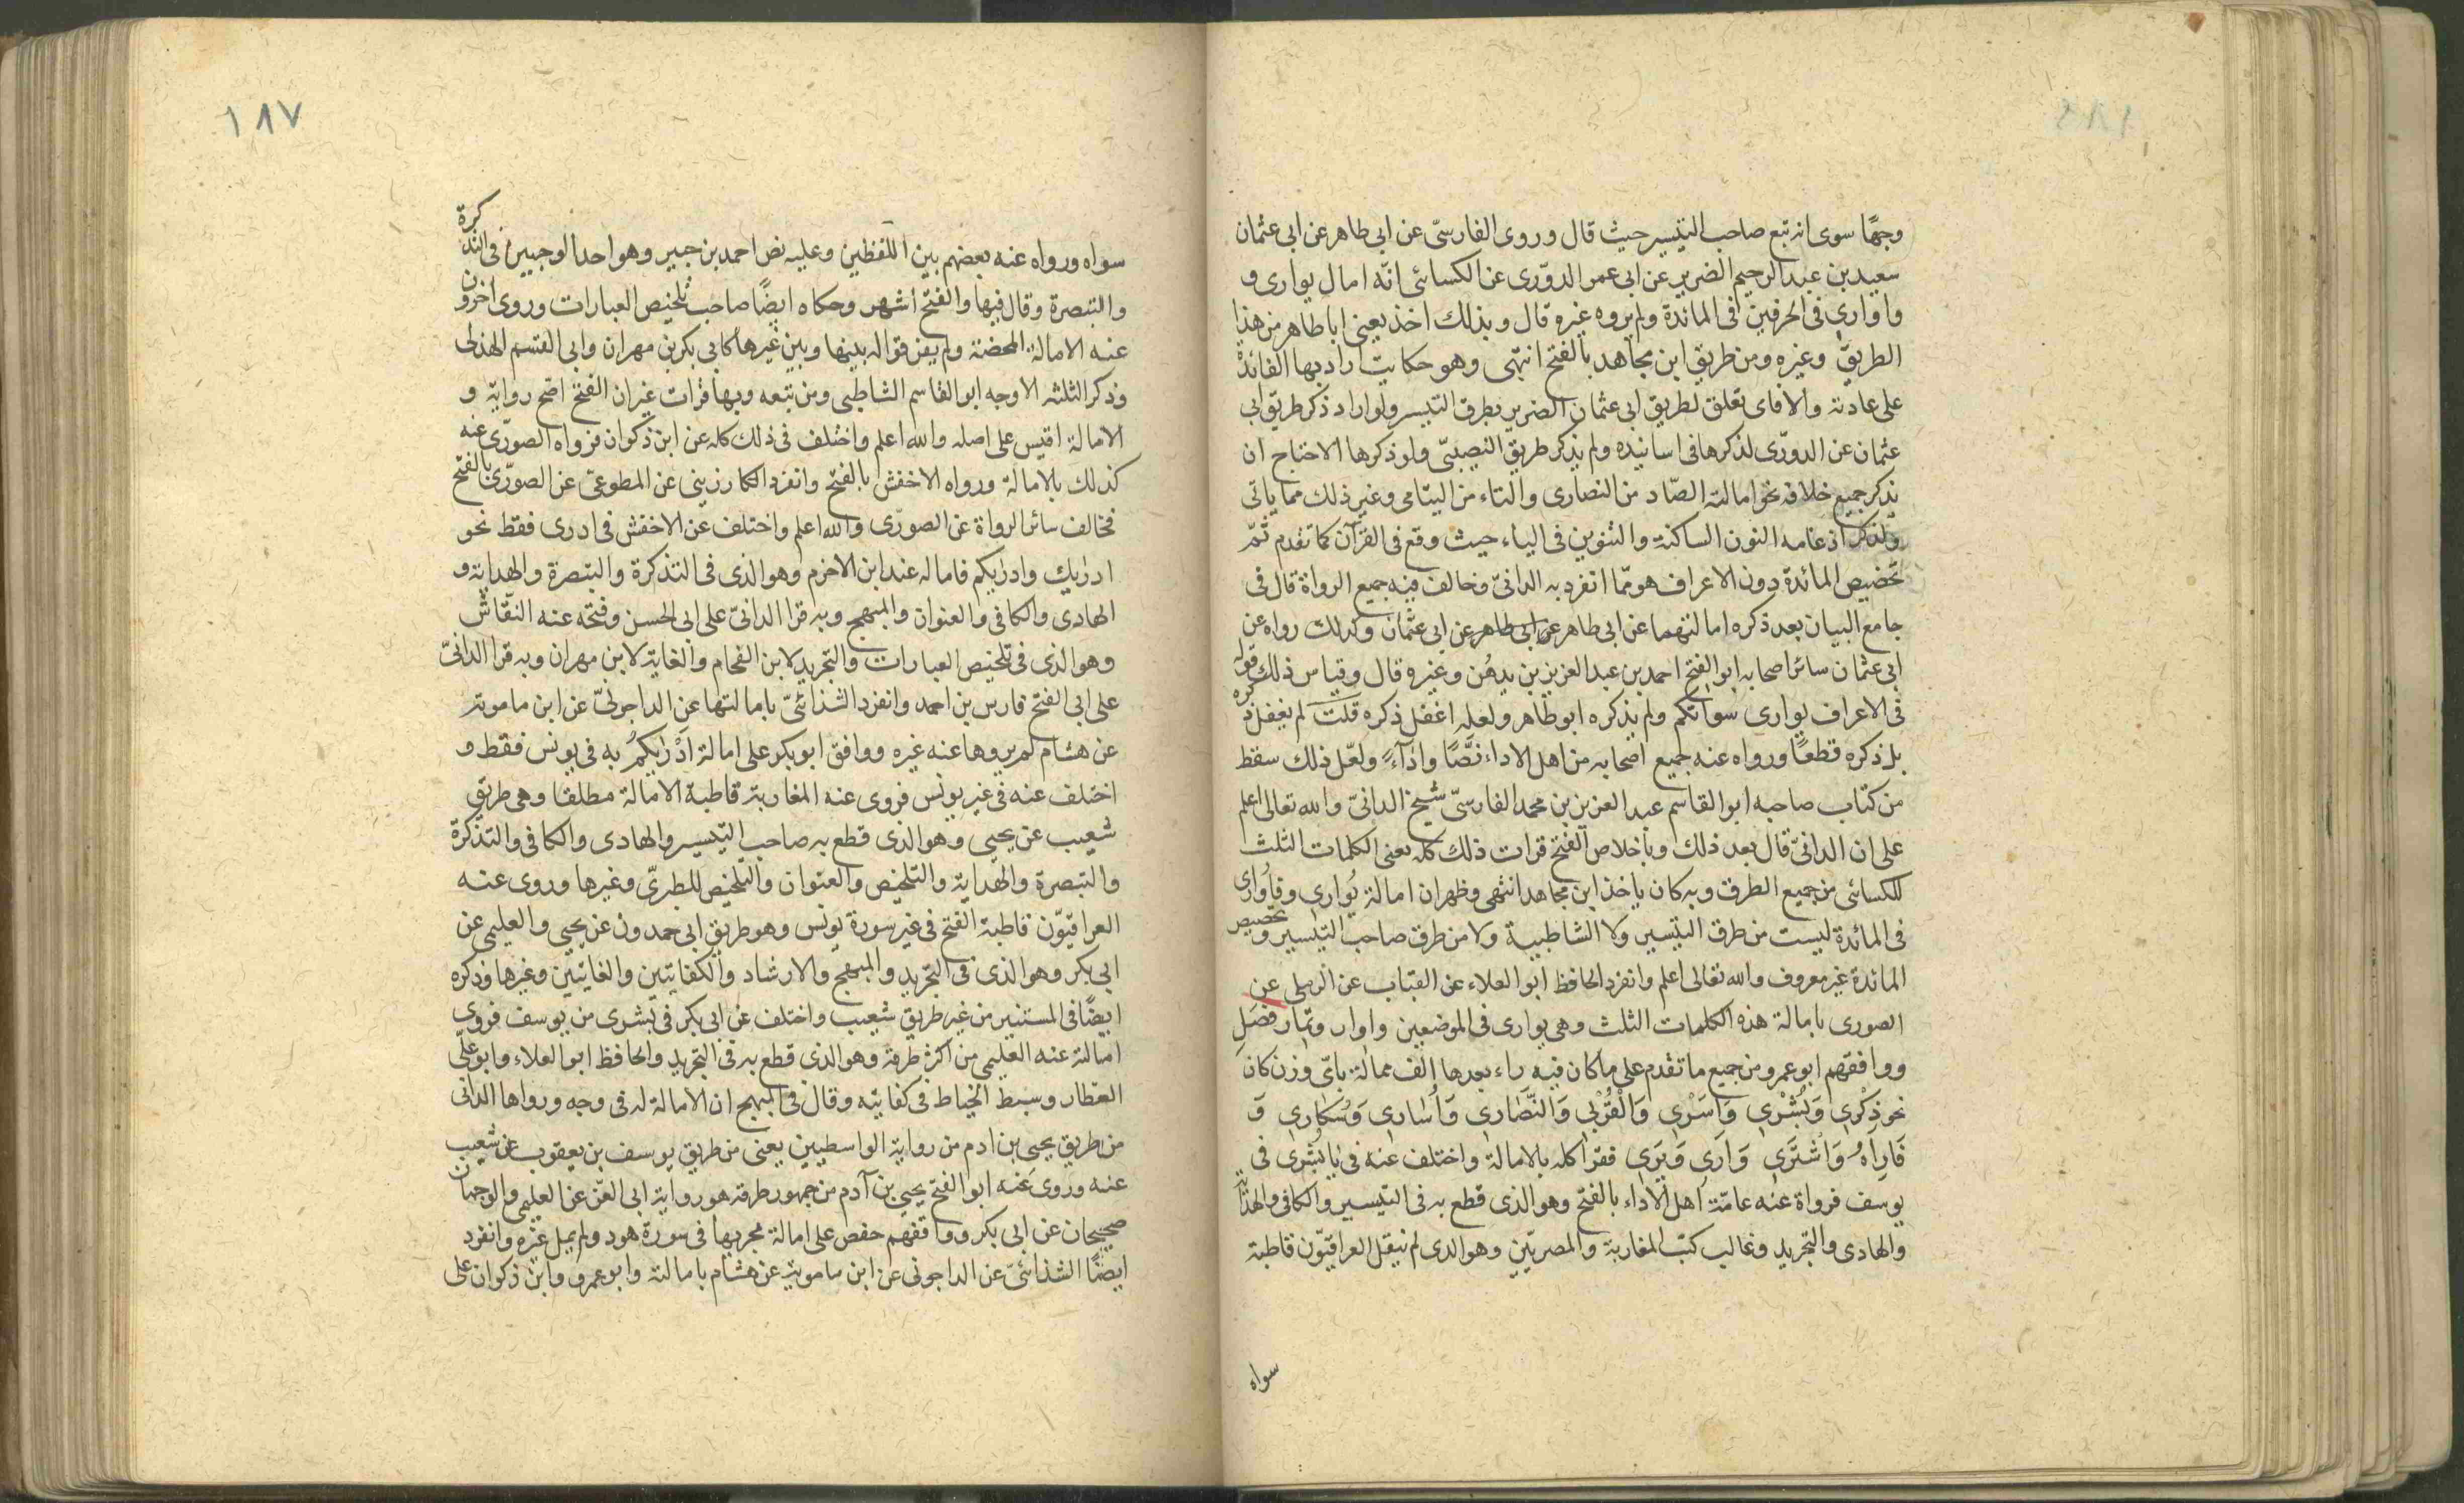 وجهًا سوى انه تبع صاحب التيسير حيث قال وروى الفارسىّ عن ابى طاهر عن ابى عثمان
سعيد بن عبد الرحيم الضرير عن ابى عمر الدوّرى عن الكسائى انّه امال يوارى و
واوارى فى الحرفين فى المائدة ولم يروه غيره قال وبذلك اخذ يعنى ابا طاهر من هذا
الطريق وغيره ومن طريق ابن مجاهد بالفتح انتهى وهو حكاية اراد بها الفائدة
على عادته والا فاى تعلق لطريق ابى عثمان الضرير بطرق التيسير ولو اراد ذكر طريق ابى
عثمان عن الدورّى لذكرها فى اسانيده ولم يذكر طريق النصيبىّ ولو ذكرها الاحتاج ان
يذكر جميع خلافه نحو امالته الصّاد من النصارى والتاء من اليتامى وغير ذلك مما ياتى
ولذكر ادغامه النون الساكنة والتنوين فى الياء حيث وقع فى القرآن كما تقدم ثمّ
تخصيص المائدة دون الاعراف هو ممّا انفرد به الدانىّ وخالف فيه جميع الرواة قال فى
جامع البيان بعد ذكره امالتهما عن ابى طاهر عن ابى طاهر عن ابى عثمان وكذلك رواه عن
ابى عثمان سائر اصحابه ابو الفتح احمد بن عبد العزيز بن بدهُن وغيره قال وقياس ذلك قوله
فى الاعراف يوارى سواتكم ولم يذكره ابو طاهر ولعله اغفل ذكره قلت لم يغفل ذكره
بل ذكره قطعًا ورواه عنه جميع اصحابه من اهل الاداء نصًّا واداءً ولعّل ذلك سقط
من كتاب صاحبه ابو القاسم عبد العزيز بن محمد الفارسىّ شيخ الدانىّ والله تعالى اعلم
على ان الدانىّ قال بعد ذلك وباخلاص الفتح قرات ذلك كله يعنى الكلمات الثلث
للكسائى من جميع الطرق وبه كان ياخذ ابن مجاهد انتهى وظهر ان امالة يُوارى وفاُوارى
فى المائدة ليست من طرق التيسير ولا الشاطبية ولا من طرق صاحب التيسير وتخصيص
المائدة غير معروف والله تعالى اعلم وانفرد الحافظ ابو العلاء عن القبّاب عن الرملى عن
الصورى بامالة هذه الكلمات الثلث وهى يوارى فى الموضعين واوار وتمار فصَلِ
ووافقهم ابو عمرو من جميع ما تقدم على ما كان فيه راء بعدها الف ممالة باىّ وزن كان
نحو ذِكْرى وَبُشْرى وَاَسْرى وَالْقُرٰى وَالنَّصَارى وَاُسَارى وَسُكَارى وَ
فَارَاهُ وَاشْتَرَى وَارَى وَيَرَى فقرا كله بالامالة واختلف عنه فى يا بُشْرى فى
يوسف فرواة عنه عامّة اهل الاداء بالفتح وهو الذى قطع به فى التيسير والكافى والهداية
والهادى والتجريد وغالب كتب المغاربة والمصريّين وهو الذى لم ينقل العراقيّون قاطبة
سواه
١٨٧
سواه ورواه عنه بعضهم بين اللفظين وعليه نص احمد بن جبير وهو احد الوجهين فى التذكرة
والتبصرة وقال فيها والفتح اشهر وحكاه ايضًا صاحب تلخيص العبارات وروى اخرون
عنه الامالة المحضة ولم يفرقوا له بينها وبين غيرها كابى بكر بن مهران وابى القسم الهذلى
وذكر الثلثه الاوجه ابو القاسم الشاطبى ومن تبعه وبها قرات غير ان الفتح اصح رواية و
الامالة اقيس على اصله والله اعلم واختلف فى ذلك كله عن ابن ذكوان فرواه الصورّى عنه
كذلك بالامالة ورواه الاخفش بالفتح وانفرد الكارزينى عن المطوعى عن الصورّى بالفتح
فخالف سائر الرواة عن الصورّى والله اعلم واختلف عن الاخفش فى ادرى فقط نحو
ادرٰيك وادرٰيكم فاماله عنه ابن الاخرم وهو الذى فى التذكرة والتبصرة والهداية و
الهادى والكافى والعنوان والمبهج وبه قرا الدانىّ على ابى الحسن وفتحه عنه النقّاش
وهو الذى فى تلخيص العبارات والتجريد لابن الفحام والغاية لابن مهران وبه قرا الدانىّ
على ابى الفتح فارس بن احمد وانفرد الشذائىّ بامالتها عن الداجونىّ عن ابن مامويه
عن هشام لم يروها عنه غيره ووافق ابو بكر على امالة اَدْرٰيكمُ به فى يونس فقط و
اختلف عنه فى غير يونس فروى عنه المغاربة قاطبة الامالة مطلقا وهى طريق
شعيب عن يحيى وهو الذى قطع به صاحب التيسير والهادى والكافى والتذكرة
والتبصرة والهداية والتلخيص والعنوان والتلخيص للطبرىّ وغيرها وروى عنه
العراقيّون قاطبة الفتح فى غير سورة يونس وهو طريق ابى حمدون عن يحيى والعليمى عن
ابى بكر وهو الذى فى التجريد والمبهج والارشاد والكفايتين والغايتين وغيرها وذكره
ايضًا فى المستنير من غير طريق شعيب واختلف عن ابى بكر فى بشرى من يوسف فروى
امالته عنه العليمى من اكثر طرقه وهو الذى قطع به فى التجريد والحافظ ابو العلاء وابو علّى
العطار وسبط الخياط فى كفايته وقال فى المبهج ان الامالة له فى وجه ورواها الدانى
من طريق يحيى بن ادم من رواية الواسطيين يعنى من طريق يوسف بن يعقوب عن شعيب
عنه وروى عنه ابو الفتح يحيى بن آدم من جمهور طرقه هو رواية ابى العّز عن العليمى والوجهان
صحيحان عن ابى بكر ووافقهم حفص على امالة مجريها فى سورة هود ولم يمل غيره وانفرد
ايضًا الشذائىّ عن الداجونى عن ابن مامويه عن هشام بامالته وابو عمرو وابن ذكوان على